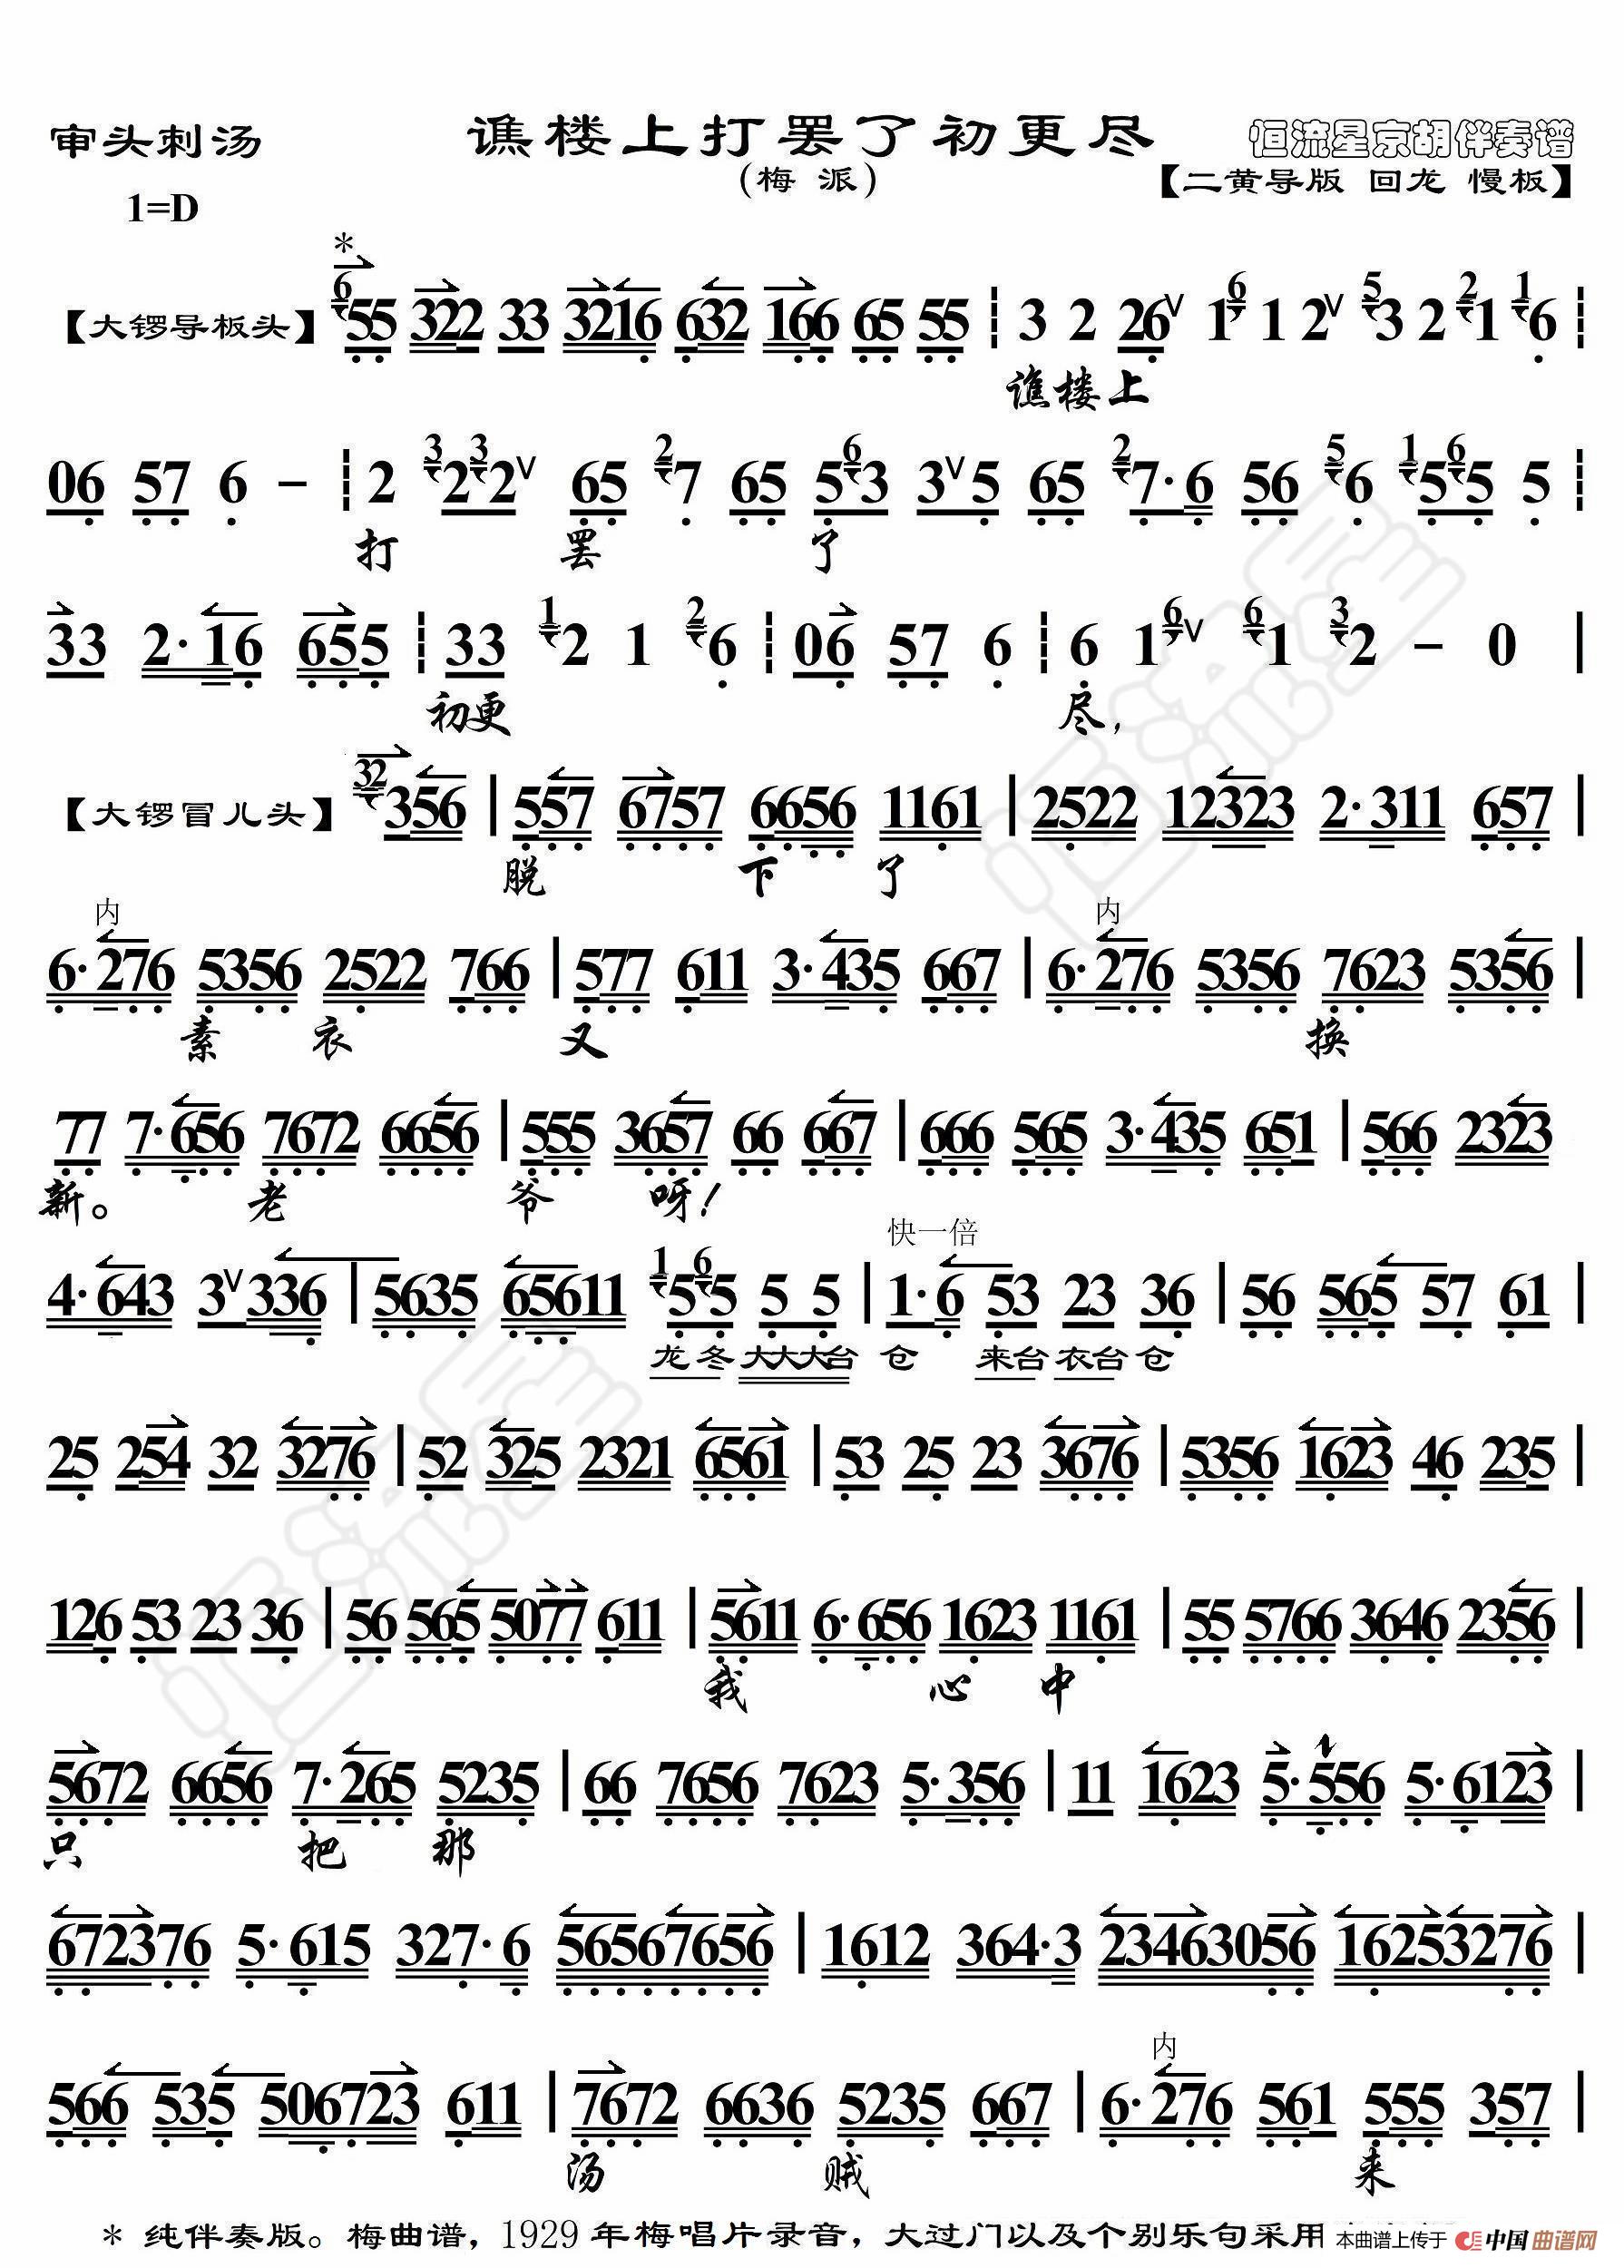 审头刺汤 谯楼上打罢了初更尽 恒流星京胡伴奏谱
(梅 派) 【二黄导版 回龙 慢板】
1=D
*
【大锣导板头】 6 55 322 33 3216 632 166 65 55 ┆ 3 2 26 ∨ 1 6 1 2 ∨ 5 3 2 2 1 1 6 ┆
谯楼上
06 57 6 - ┆ 2 3 2 3 2 ∨ 65 2 7 65 5 6 3 3 ∨ 5 65 2 7·6 56 5 6 1 5 6 5 5 ┆
打 罢 了
33 2·16 655 ┆ 33 1 2 1 2 6 ┆ 06 57 6 ┆ 6 1 6 ∨ 6 1 3 2 - 0 |
初更 尽,
【大锣冒儿头】 32 356 | 557 6757 6656 1161 | 2522 12323 2·311 657 |
脱 下 了
内 内
6·276 5356 2522 766 | 577 611 3·435 667 | 6·276 5356 7623 5356 |
素 衣 又 换
77 7·656 7672 6656 | 555 3657 66 667 | 666 565 3·435 651 | 566 2323
新。 老 爷 呀!
快一倍
4·643 3 ∨ 336 | 5635 65611 1 5 6 5 5 5 | 1·6 53 23 36 | 56 565 57 61 |
龙冬 大大大台 仓 来台衣台仓
25 254 32 3276 | 52 325 2321 6561 | 53 25 23 3676 | 5356 1623 46 235 |
126 53 23 36 | 56 565 5077 611 | 5611 6·656 1623 1161 | 55 5766 3646 2356
我 心 中
5672 6656 7·265 5235 | 66 7656 7623 5·356 | 11 1623 5·556 5·6123 |
只 把 那
672376 5·615 327·6 56567656 | 1612 364·3 23463056 16253276 |
内
566 535 506723 611 | 7672 6636 5235 667 | 6·276 561 555 357 |
汤 贼 来
* 纯伴奏版。梅曲谱，1929年梅唱片录音，大过门以及个别乐句采用
本曲谱上传于 中国曲谱网